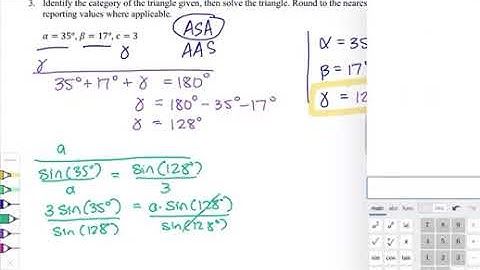 3. Identify the category of the triangle given, then solve the triangle. Round to the neares
reporting values where applicable.
α = 35°, β = 17°, c = 3
ASA
AAS
γ
γ
35° + 17° + γ = 180°
γ = 180° − 35° − 17°
γ = 128°
α = 35
β = 17°
γ = 12
a
sin(35°)/a = sin(128°)/3
3 sin(35°)/sin(128°) = a · sin(128°)/sin(128°)
main abc func
a² aᵇ |a| 7 8 9
√ 4 5 6
sin cos tan 1 2 3